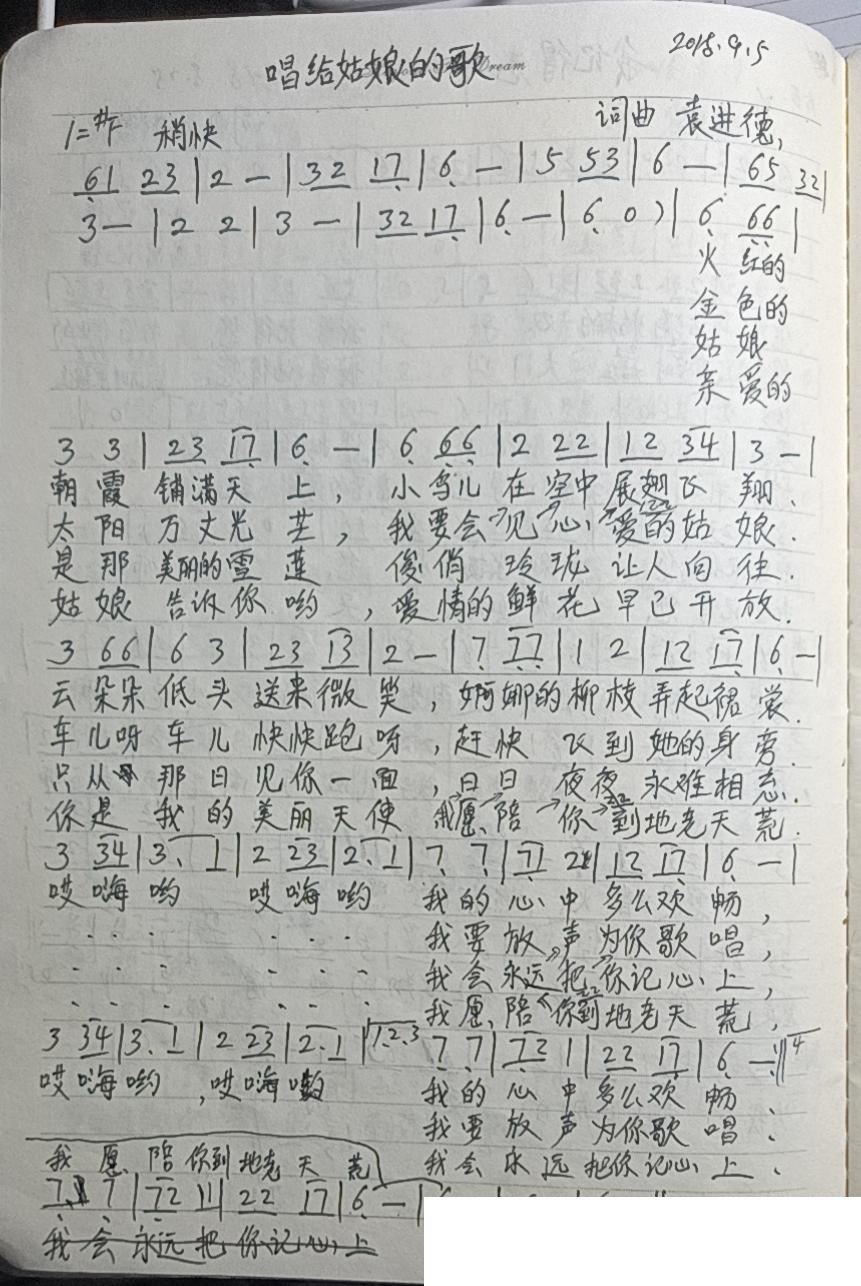 2018.9.5
唱给姑娘的歌 Dream
1=#F 稍快 词曲 袁进德,
61 23|2 —|32 17|6 —|5 53|6 —|65 32|
3 —|2 2|3 —|32 17|6 —|6 0)|6 66|
火 红的
金 色的
姑 娘
亲 爱的
3 3|23 17|6 —|6 66|2 22|12 34|3 —|
朝 霞 铺满天 上， 小 鸟儿 在 空中 展翅飞 翔．
太 阳 万丈光 芒， 我 要会 见 心 爱的姑 娘．
是 那 美丽的雪 莲 俊 俏 玲 珑 让人向 往．
姑 娘 告诉你 哟 ，爱 情的 鲜 花 早已开 放．
3 66|6 3|23 13|2 —|7 77|1 2|12 17|6 —|
云 朵朵 低 头 送来微 笑，婀 娜的 柳 枝 弄起裙 裳．
车 儿呀 车 儿 快快跑 呀，赶 快 飞 到 她的身 旁．
只 从 那 日 见你一 面，日 日 夜 夜 永难相 忘．
你 是 我 的 美丽天 使 我愿 陪 你 到地老天 荒．
3 34|3. 1|2 23|2. 1|7 7|71 2|12 17|6 —|
哎 嗨 哟 哎 嗨 哟 我 的 心 中 多么欢 畅，
· · · · · · 我 要 放 声 为你歌 唱，
· · · · · · 我 会 永远 把 你记心 上，
· · · · · · 我 愿 陪 你到地老天 荒，
3 34|3. 1|2 23|2. 1|1.2.3 7 7|72 1|22 17|6 —:‖4
哎 嗨 哟 ，哎 嗨 我 的 心 中 多么欢 畅．
我 要 放 声 为你歌 唱．
我 愿 陪 你到 地老 天 荒 我 会 永 远 把你记心 上．
7 7|72 1|22 17|6 —|
我 会 永远 把 你 记 心 上